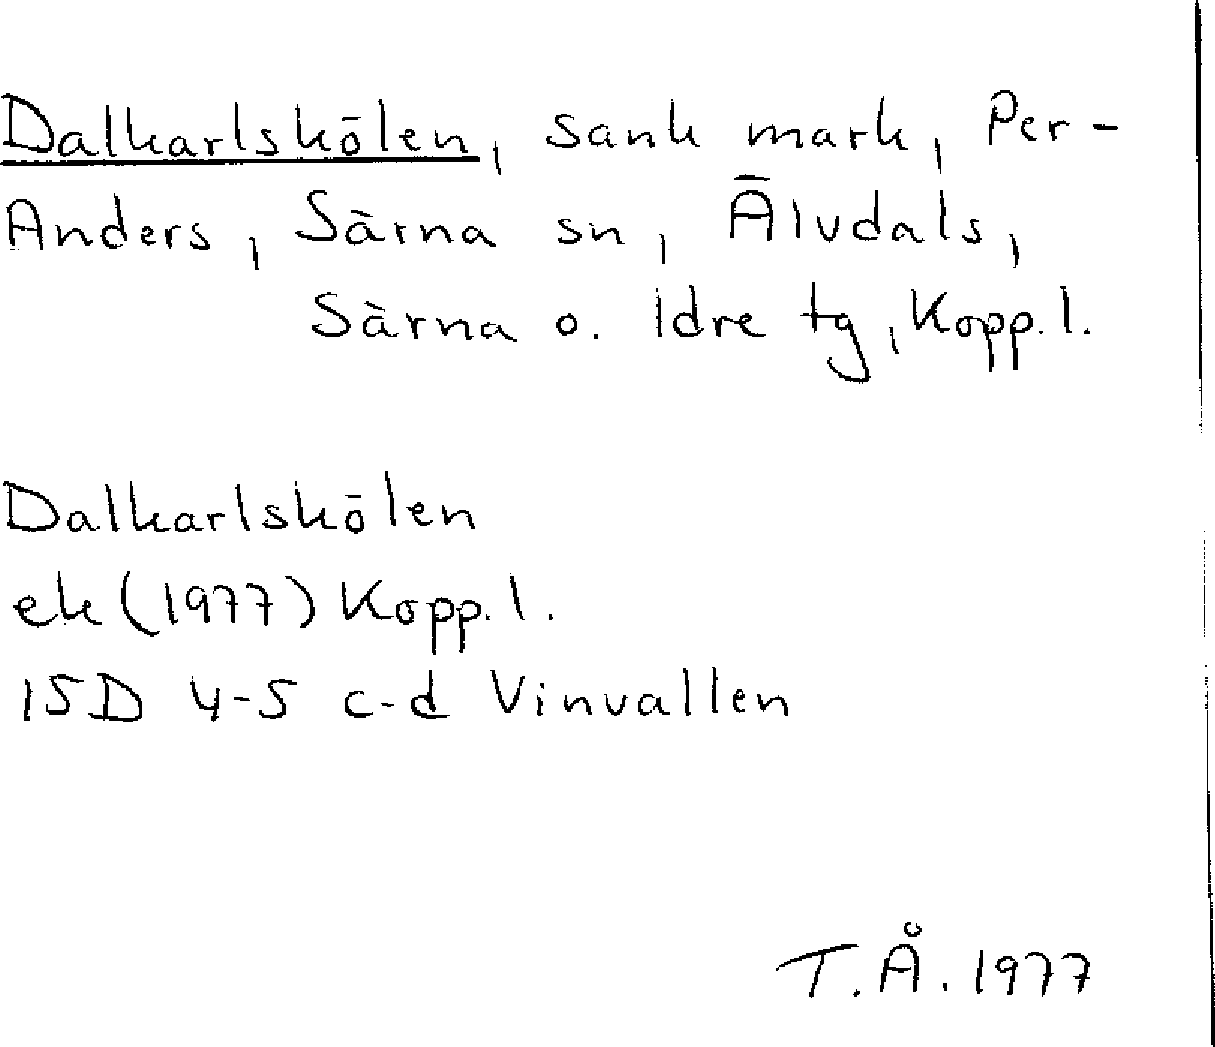 Dalkarlskölen, sank mark, Per-
Anders, Särna sn, Älvdals,
Särna o. Idre tg, Kopp. l.
Dalkarlskölen
ek (1977) Kopp. l.
15D 4-5 c-d Vinvallen
T.Å. 1977